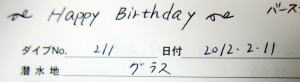 Happy Birthday バース
ダイブNo. 211 日付 2012.2.11
潜水地 グラス